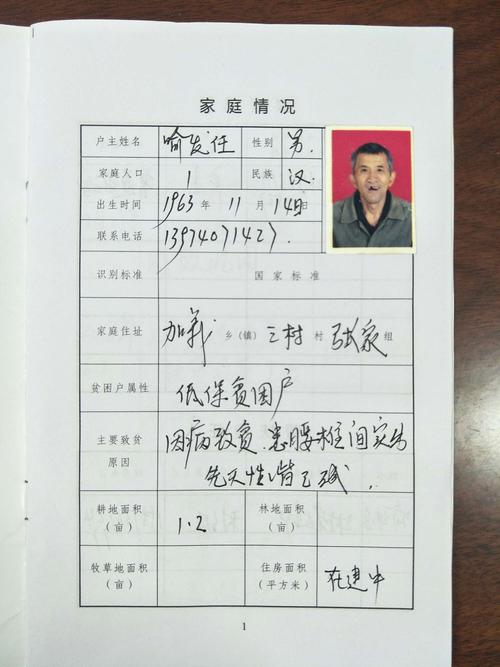 家庭情况
户主姓名 喻发任 性别 男.
家庭人口 1 民族 汉.
出生时间 1963 年 11 月 14日
联系电话
识别标准 国家标准
家庭住址 加义 乡(镇) 三村 村 张家 组
贫困户属性 低保贫困户
主要致贫 因病致贫.患腰椎间
原因 先天性
耕地面积 1.2 林地面积
(亩) (亩)
牧草地面积 住房面积 在建中
(亩) (平方米)
1